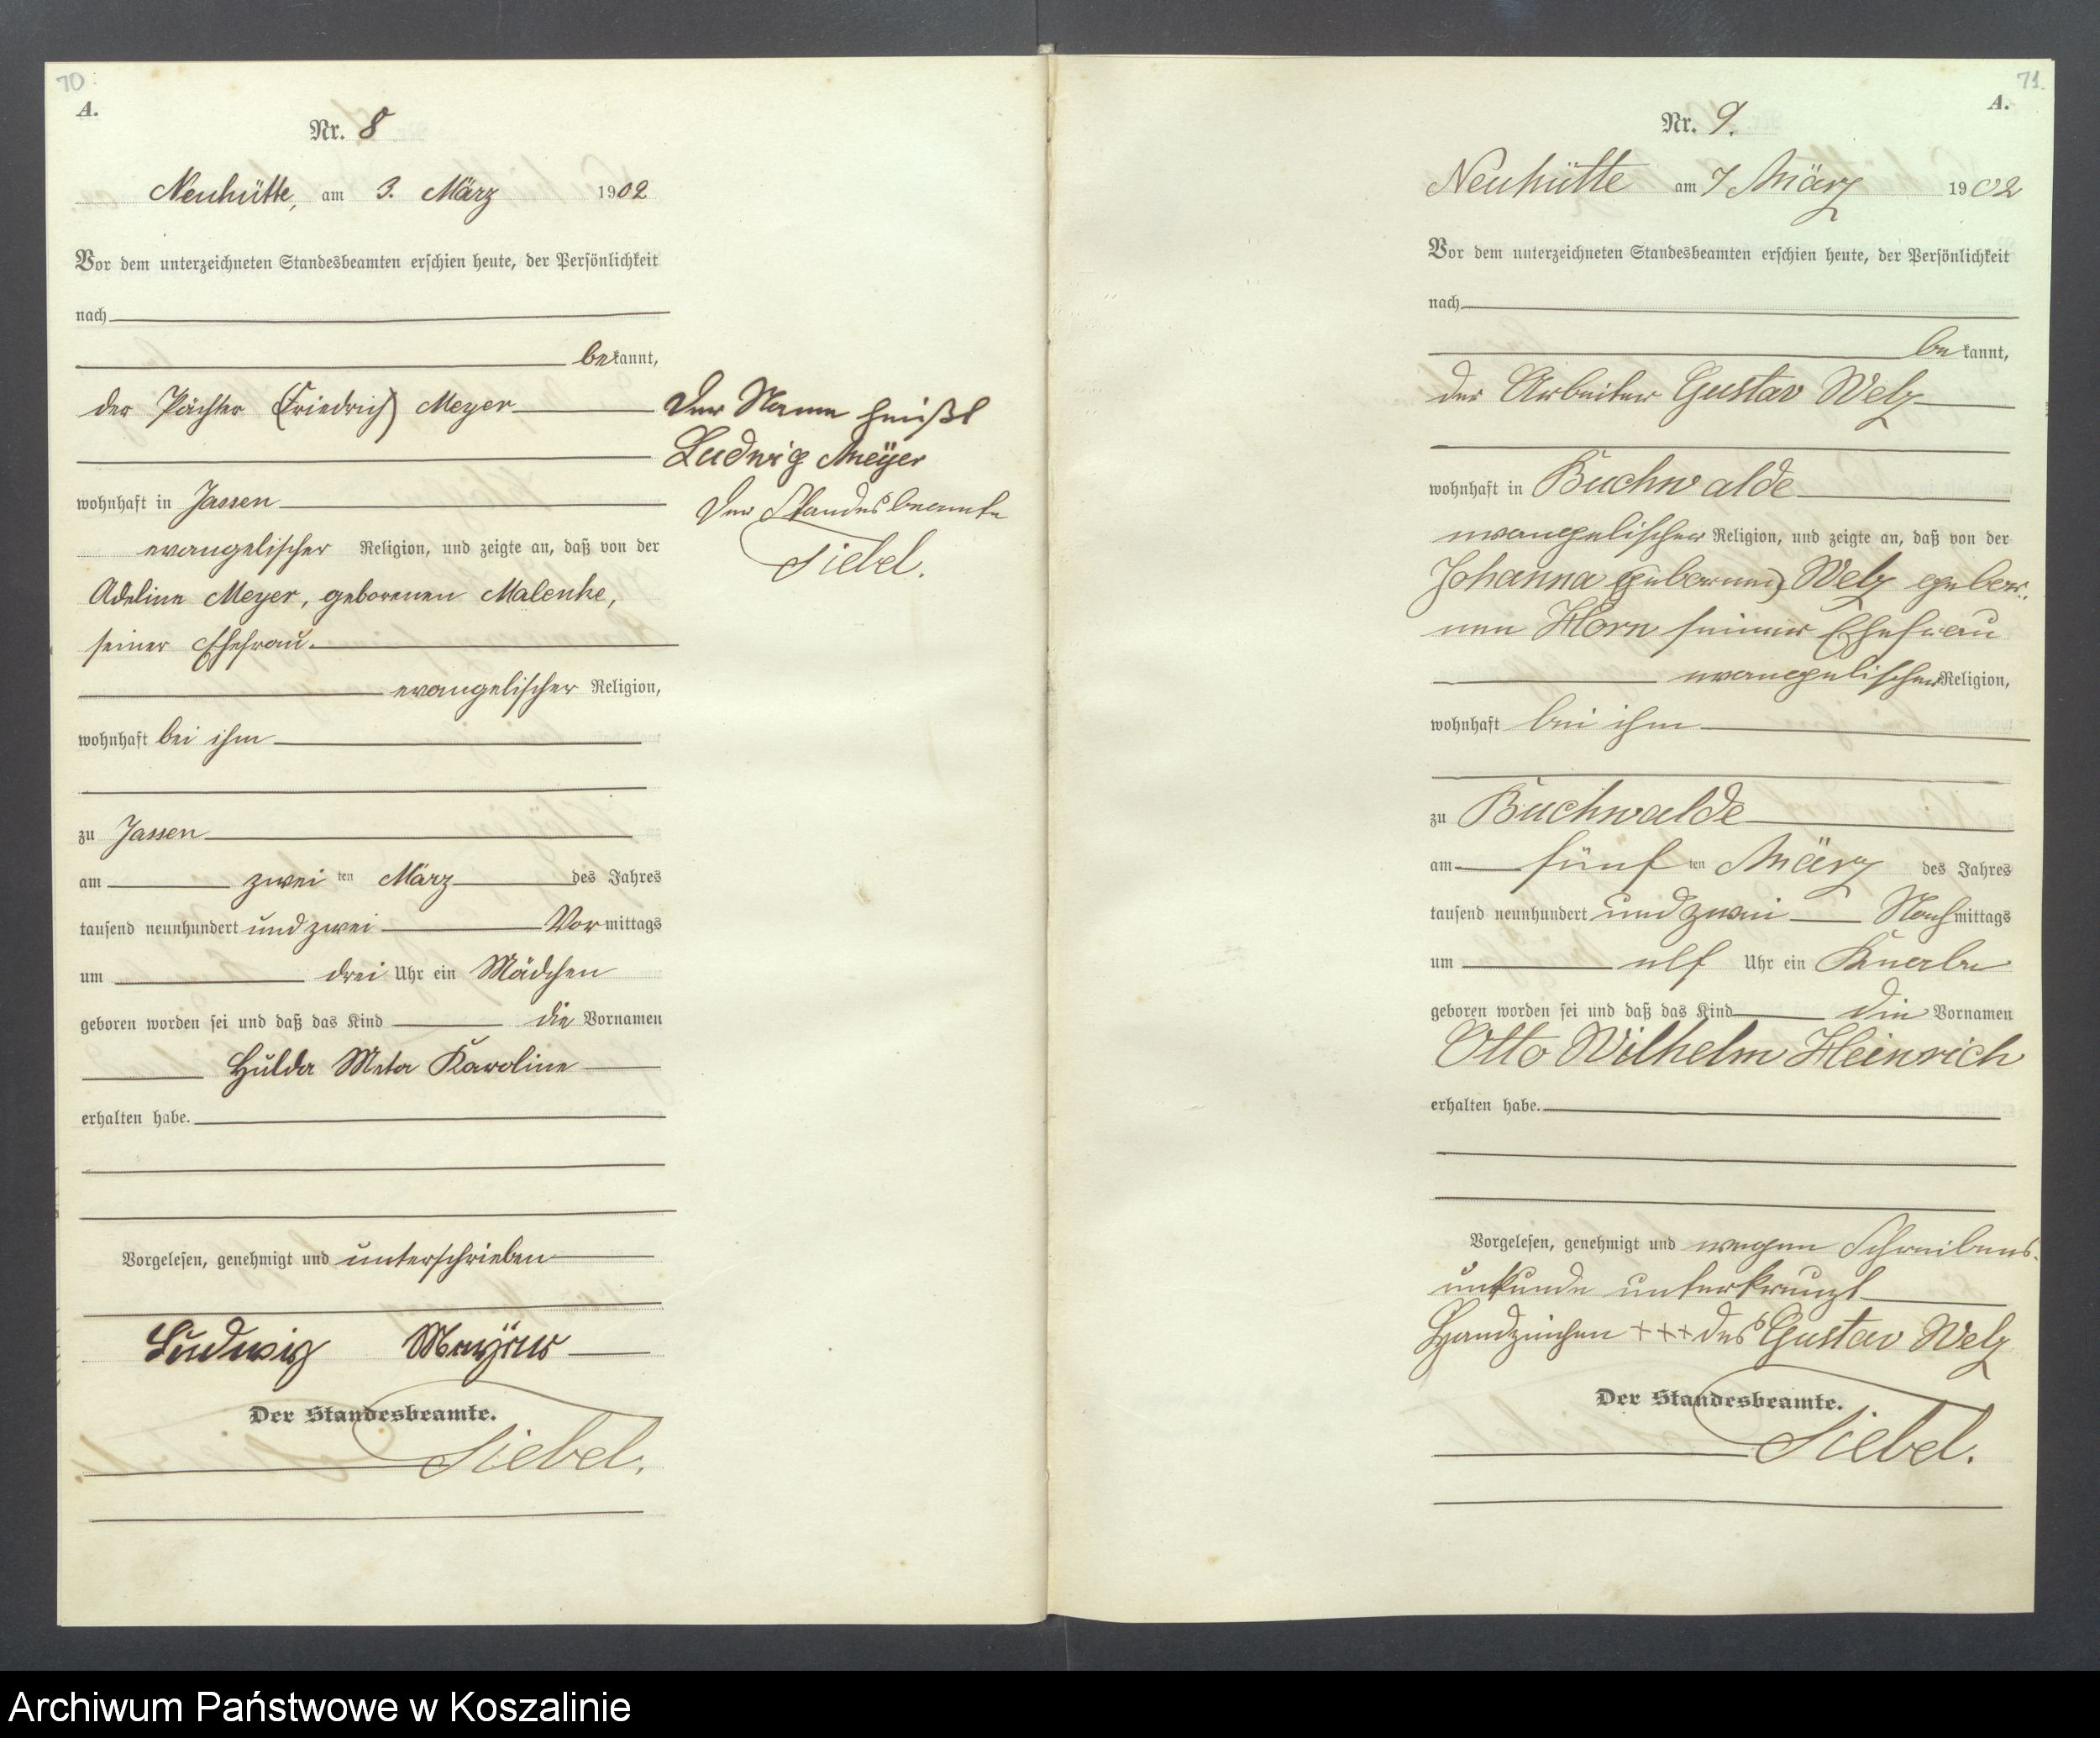 70
A.
Nr. 8
Neuhütte, am 3. März 1902
Vor dem unterzeichneten Standesbeamten erschien heute, der Persönlichkeit
nach
bekannt,
der Pächter (Friedrich) Meyer
wohnhaft in Jassen
evangelischer Religion, und zeigte an, daß von der
Adeline Meyer, geborenen Malenke,
seiner Ehefrau.
evangelischer Religion,
wohnhaft bei ihm
zu Jassen
am zwei ten März des Jahres
tausend neunhundert und zwei Vormittags
um drei Uhr ein Mädchen
geboren worden sei und daß das Kind die Vornamen
Hulda Meta Karoline
erhalten habe.
Vorgelesen, genehmigt und unterschrieben
Ludwig
Der Standesbeamte.
Siebel.
Der Name heißt
Ludwig Meÿer
Der Standesbeamte
Siebel.
71.
A.
Nr. 9.
Neuhütte am 7 März 1902
Vor dem unterzeichneten Standesbeamten erschien heute, der Persönlichkeit
nach
bekannt,
der Arbeiter Gustav Welz
wohnhaft in Buchwalde
evangelischer Religion, und zeigte an, daß von der
Johanna (geborenen) Welz gebor:
nen Horn seiner Ehefrau
evangelischer Religion,
wohnhaft bei ihm
zu Buchwalde
am fünf ten März des Jahres
tausend neunhundert und zwei Nachmittags
um elf Uhr ein Knabe
geboren worden sei und daß das Kind die Vornamen
Otto Wilhelm Heinrich
erhalten habe.
Vorgelesen, genehmigt und wegen Schreibens-
unkunde unterkreuzt
Handzeichen +++ des Gustav Welz
Der Standesbeamte.
Siebel.
Archiwum Państwowe w Koszalinie